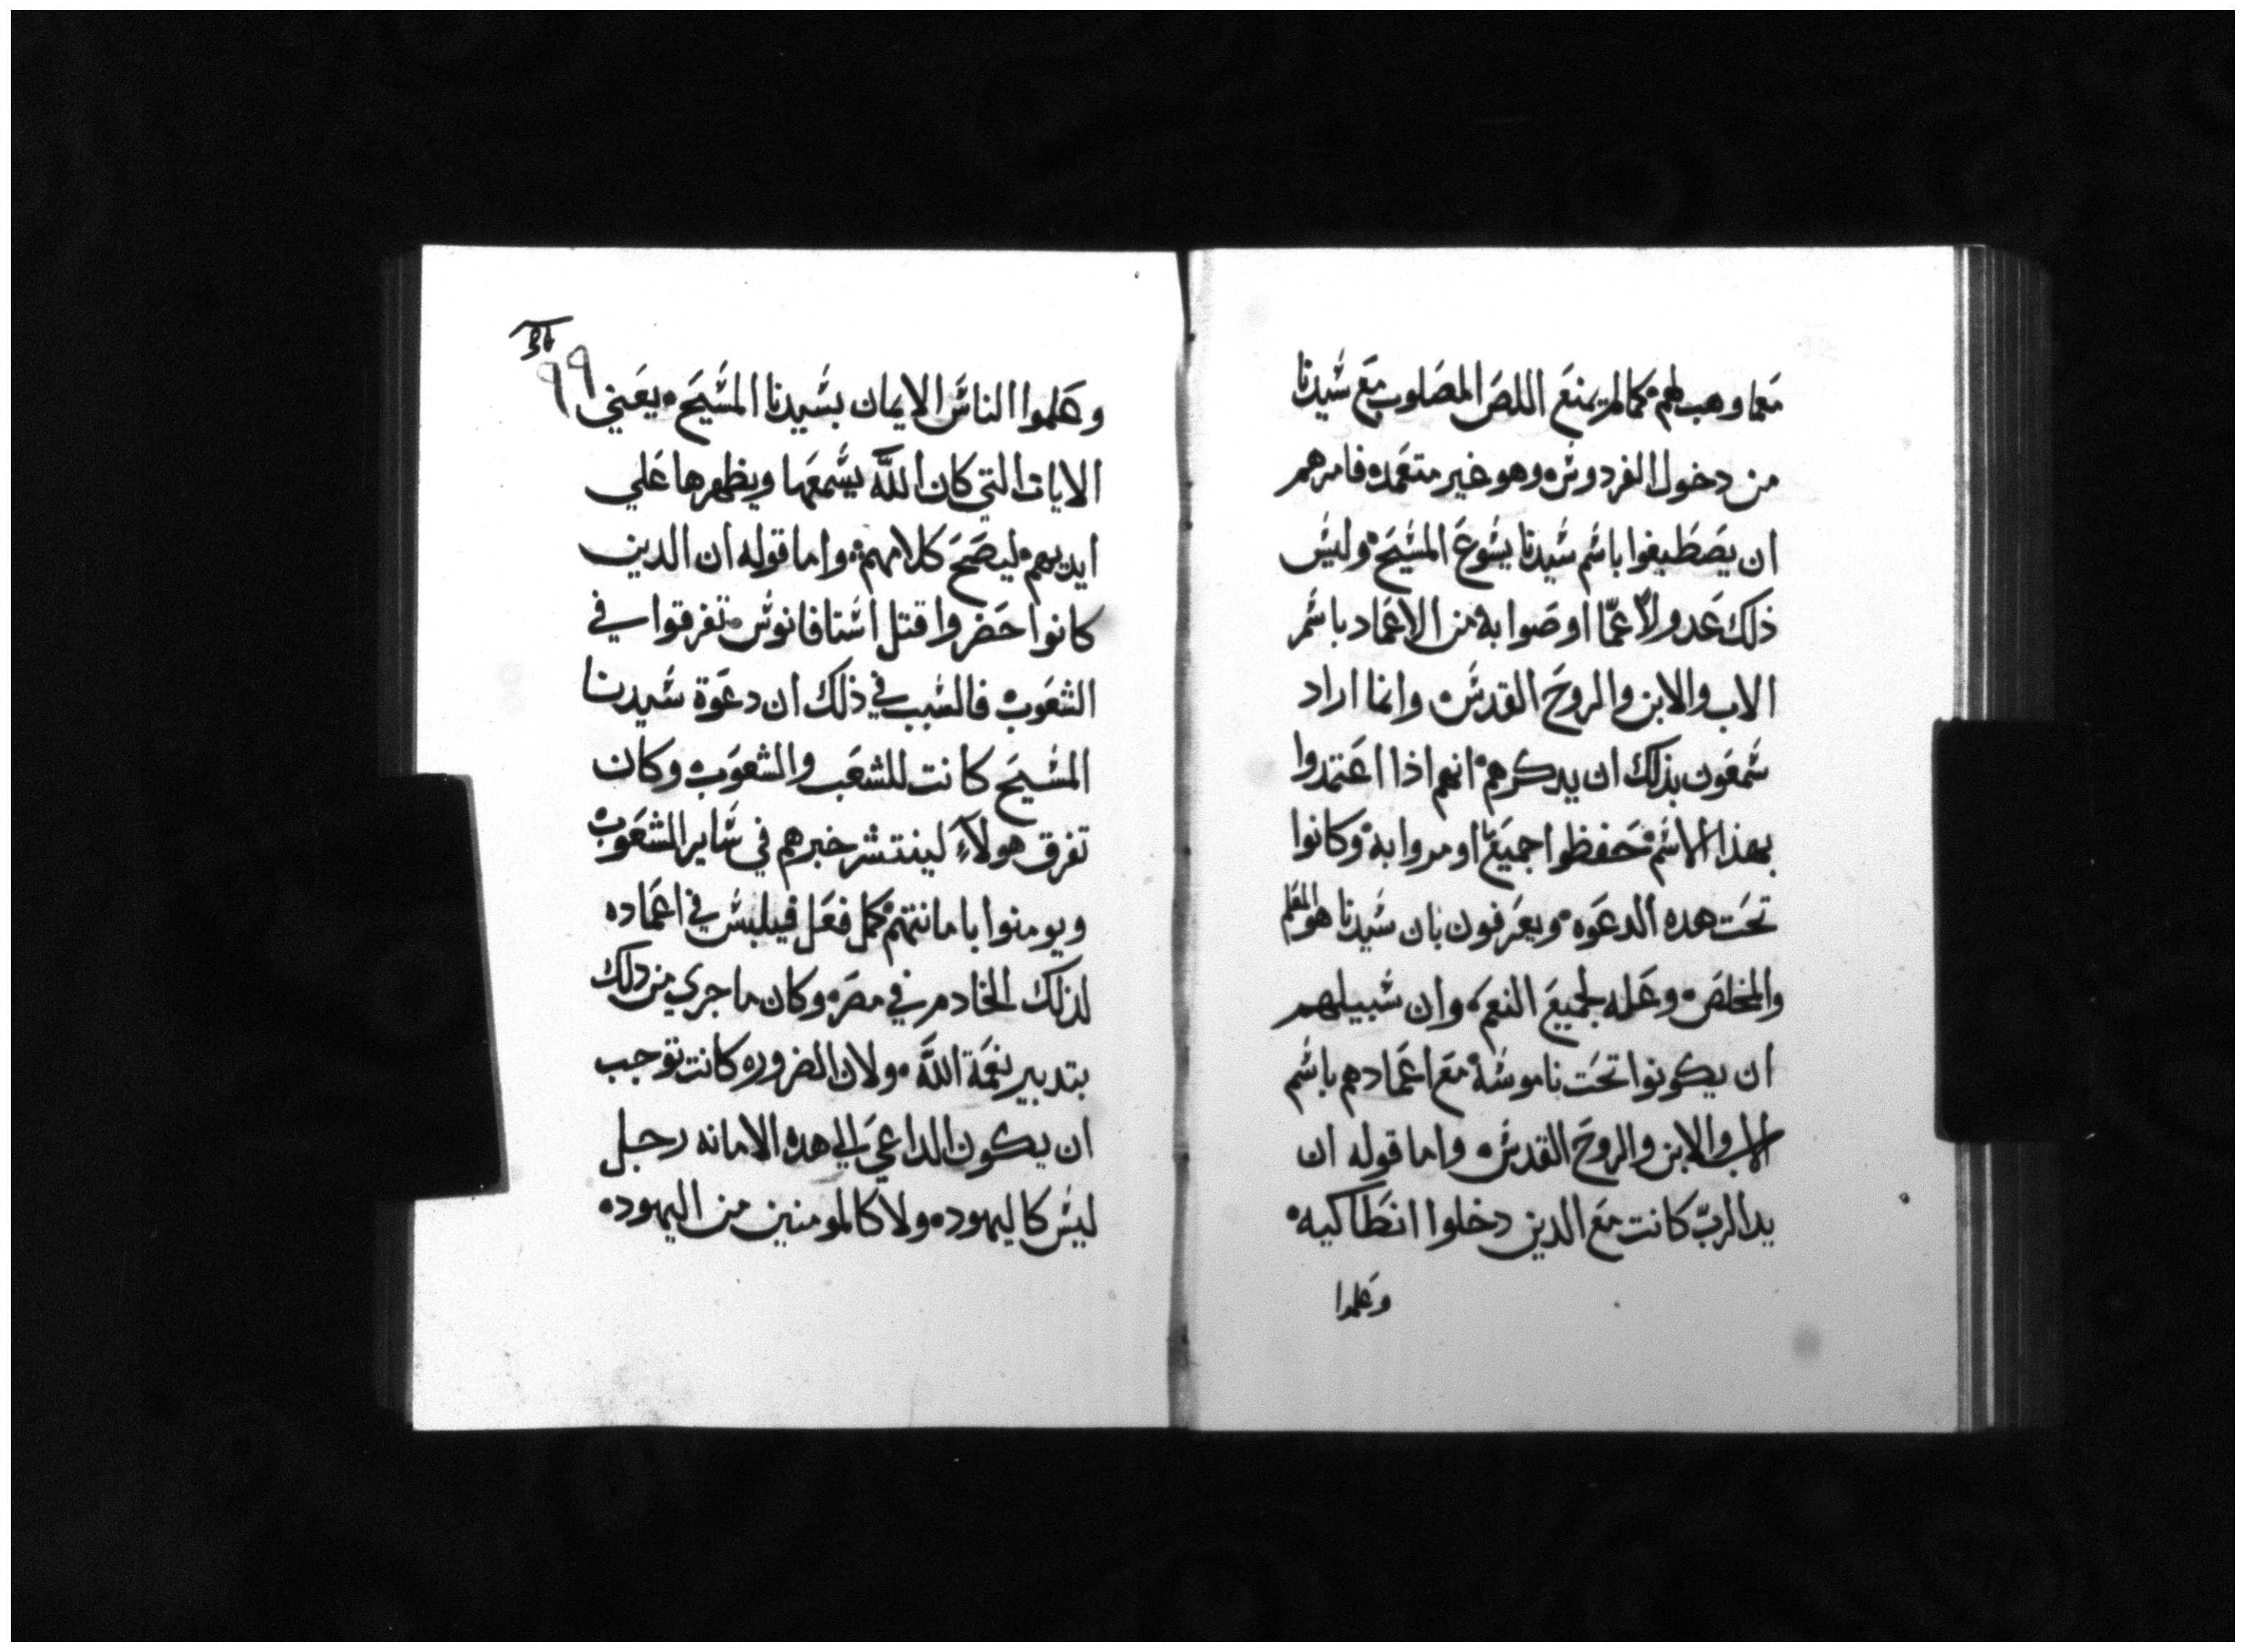 مما وهب لهم كما لم يمنع اللص المصلوب مع سيدنا
من دخول الفردوس وهو غير متعمد فامرهم
ان يصطبغوا باسم سيدنا يسوع المسيح وليس
ذلك عدولاً عمّا اوصوا به من الاعماد باسم
الاب والابن والروح القدس وانما اراد
شمعون بذلك ان يدكرهم انهم اذا اعتمدوا
بهذا الاسم حفظوا جميع ما اومروا به وكانوا
تحت هده الدعوه ويعرفون بان سيدنا هو المعلم
والمخلص وعله لجميع النعم وان سبيلهم
ان يكونوا تحت ناموسه مع اعمادهم باسم
الاب والابن والروح القدس واما قوله ان
يد الربّ كانت مع الدين دخلوا انطاكيه
وعلموا
٩٩
وعلموا الناس الايمان بسيدنا المسيح يعني
الايات التي كان اللّه يسمعها ويظهرها علي
ايديهم ليصحح كلامهم واما قوله ان الدين
كانوا حضروا قتل اسنافانوس تفرقوا في
الشعوب فالسبب في ذلك ان دعوة سيدنا
المسيح كانت للشعب والشعوب وكان
تفرق هولاء لينتشر خبرهم في ساير الشعوب
ويومنوا بامانتهم كمل فعل فيلبس في اعماده
لذلك الخادم في مصر وكان ما جري من دلك
بتدبير نعمة اللّه ولان الضروره كانت توجب
ان يكون الداعي الي هده الامانه رجل
ليس كاليهود ولا كالمومنين من اليهود